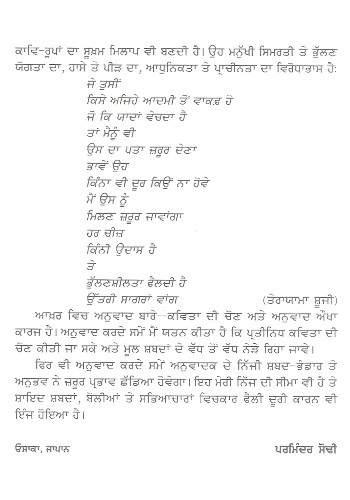 ਕਾਵਿ-ਰੂਪਾਂ ਦਾ ਸੂਖ਼ਮ ਮਿਲਾਪ ਵੀ ਬਣਦੀ ਹੈ। ਉਹ ਮਨੁੱਖੀ ਸਿਮਰਤੀ ਤੇ ਭੁੱਲਣ
ਯੋਗਤਾ ਦਾ, ਹਾਸੇ ਤੇ ਪੀੜ ਦਾ, ਆਧੁਨਿਕਤਾ ਤੇ ਪ੍ਰਾਚੀਨਤਾ ਦਾ ਵਿਰੋਧਾਭਾਸ ਹੈ:
ਜੇ ਤੁਸੀਂ
ਕਿਸੇ ਅਜਿਹੇ ਆਦਮੀ ਤੋਂ ਵਾਕਫ਼ ਹੋ
ਜੋ ਕਿ ਯਾਦਾਂ ਵੇਚਦਾ ਹੈ
ਤਾਂ ਮੈਨੂੰ ਵੀ
ਉਸ ਦਾ ਪਤਾ ਜ਼ਰੂਰ ਦੇਣਾ
ਭਾਵੇਂ ਉਹ
ਕਿੰਨਾ ਵੀ ਦੂਰ ਕਿਉਂ ਨਾ ਹੋਵੇ
ਮੈਂ ਉਸ ਨੂੰ
ਮਿਲਣ ਜ਼ਰੂਰ ਜਾਵਾਂਗਾ
ਹਰ ਚੀਜ਼
ਕਿੰਨੀ ਉਦਾਸ ਹੈ
ਤੇ
ਭੁੱਲਣਸ਼ੀਲਤਾ ਫੈਲਦੀ ਹੈ
ਉੱਤਰੀ ਸਾਗਰਾਂ ਵਾਂਗ (ਤੇਰਾਯਾਮਾ ਸ਼ੂਜੀ)
ਆਖ਼ਰ ਵਿਚ ਅਨੁਵਾਦ ਬਾਰੇ–ਕਵਿਤਾ ਦੀ ਚੋਣ ਅਤੇ ਅਨੁਵਾਦ ਔਖਾ
ਕਾਰਜ ਹੈ। ਅਨੁਵਾਦ ਕਰਦੇ ਸਮੇਂ ਮੈਂ ਯਤਨ ਕੀਤਾ ਹੈ ਕਿ ਪ੍ਰਤੀਨਿਧ ਕਵਿਤਾ ਦੀ
ਚੋਣ ਕੀਤੀ ਜਾ ਸਕੇ ਅਤੇ ਮੂਲ ਸ਼ਬਦਾਂ ਦੇ ਵੱਧ ਤੋਂ ਵੱਧ ਨੇੜੇ ਰਿਹਾ ਜਾਵੇ।
ਫਿਰ ਵੀ ਅਨੁਵਾਦ ਕਰਦੇ ਸਮੇਂ ਅਨੁਵਾਦਕ ਦੇ ਨਿੱਜੀ ਸ਼ਬਦ-ਭੰਡਾਰ ਤੇ
ਅਨੁਭਵ ਨੇ ਜ਼ਰੂਰ ਪ੍ਰਭਾਵ ਛੱਡਿਆ ਹੋਵੇਗਾ। ਇਹ ਮੇਰੀ ਨਿੱਜ ਦੀ ਸੀਮਾ ਵੀ ਹੈ ਤੇ
ਸ਼ਾਇਦ ਸ਼ਬਦਾਂ, ਬੋਲੀਆਂ ਤੇ ਸਭਿਆਚਾਰਾਂ ਵਿਚਕਾਰ ਫੈਲੀ ਦੂਰੀ ਕਾਰਨ ਵੀ
ਇੰਜ ਹੋਇਆ ਹੈ।
ਓਸਾਕਾ, ਜਾਪਾਨ ਪਰਮਿੰਦਰ ਸੋਢੀ